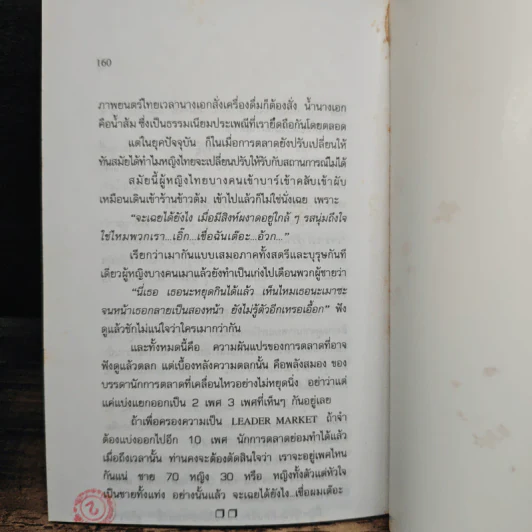 160
ภาพยนตร์ไทยเวลานางเอกสั่งเครื่องดื่มก็ต้องสั่ง น้ำนางเอก
คือน้ำส้ม ซึ่งเป็นธรรมเนียมประเพณีที่เรายึดถือกันโดยตลอด
แต่ในยุคปัจจุบัน ก็ในเมื่อการตลาดยังปรับเปลี่ยนให้
ทันสมัยได้ทำไมหญิงไทยจะเปลี่ยนปรับให้รับกับสถานการณ์ไม่ได้
สมัยนี้ผู้หญิงไทยบางคนเข้าบาร์เข้าคลับเข้าผับ
เหมือนเดินเข้าร้านข้าวต้ม เข้าไปแล้วก็ไม่ใช่นั่งเฉย เพราะ
“จะเฉยได้ยังไง เมื่อมีสิงห์ผงาดอยู่ใกล้ ๆ รสนุ่มถึงใจ
ใช่ไหมพวกเรา...เอิ๊ก...เชื่อฉันเต๊อะ...อ้วก...”
เรียกว่าเมากันแบบเสมอภาคทั้งสตรีและบุรุษกันที
เดียวผู้หญิงบางคนเมาแล้วยังทำเป็นเก่งไปเตือนพวกผู้ชายว่า
“นี่เธอ เธอนะหยุดกินได้แล้ว เห็นไหมเธอนะเมาซะ
จนหน้าเธอกลายเป็นสองหน้า ยังไม่รู้ตัวอีกเหรอเอื้อก” ฟัง
ดูแล้วชักไม่แน่ใจว่าใครเมากว่ากัน
และทั้งหมดนี้คือ ความผันแปรของการตลาดที่อาจ
ฟังดูแล้วตลก แต่เบื้องหลังความตลกนั้น คือพลังสมอง ของ
บรรดานักการตลาดที่เคลื่อนไหวอย่างไม่หยุดนิ่ง อย่าว่าแต่
แค่แบ่งแยกออกเป็น 2 เพศ 3 เพศที่เห็นๆ กันอยู่เลย
ถ้าเพื่อครองความเป็น LEADER MARKET ถ้าจำ
ต้องแบ่งออกไปอีก 10 เพศ นักการตลาดย่อมทำได้แล้ว
เมื่อถึงเวลานั้น ท่านคงจะต้องตัดสินใจว่า เราจะอยู่เพศไหน
กันแน่ ชาย 70 หญิง 30 หรือ หญิงทั้งตัวแต่หัวใจ
เป็นชายทั้งแท่ง อย่างนั้นแล้ว จะเฉยได้ยังไง...เชื่อผมเต๊อะ